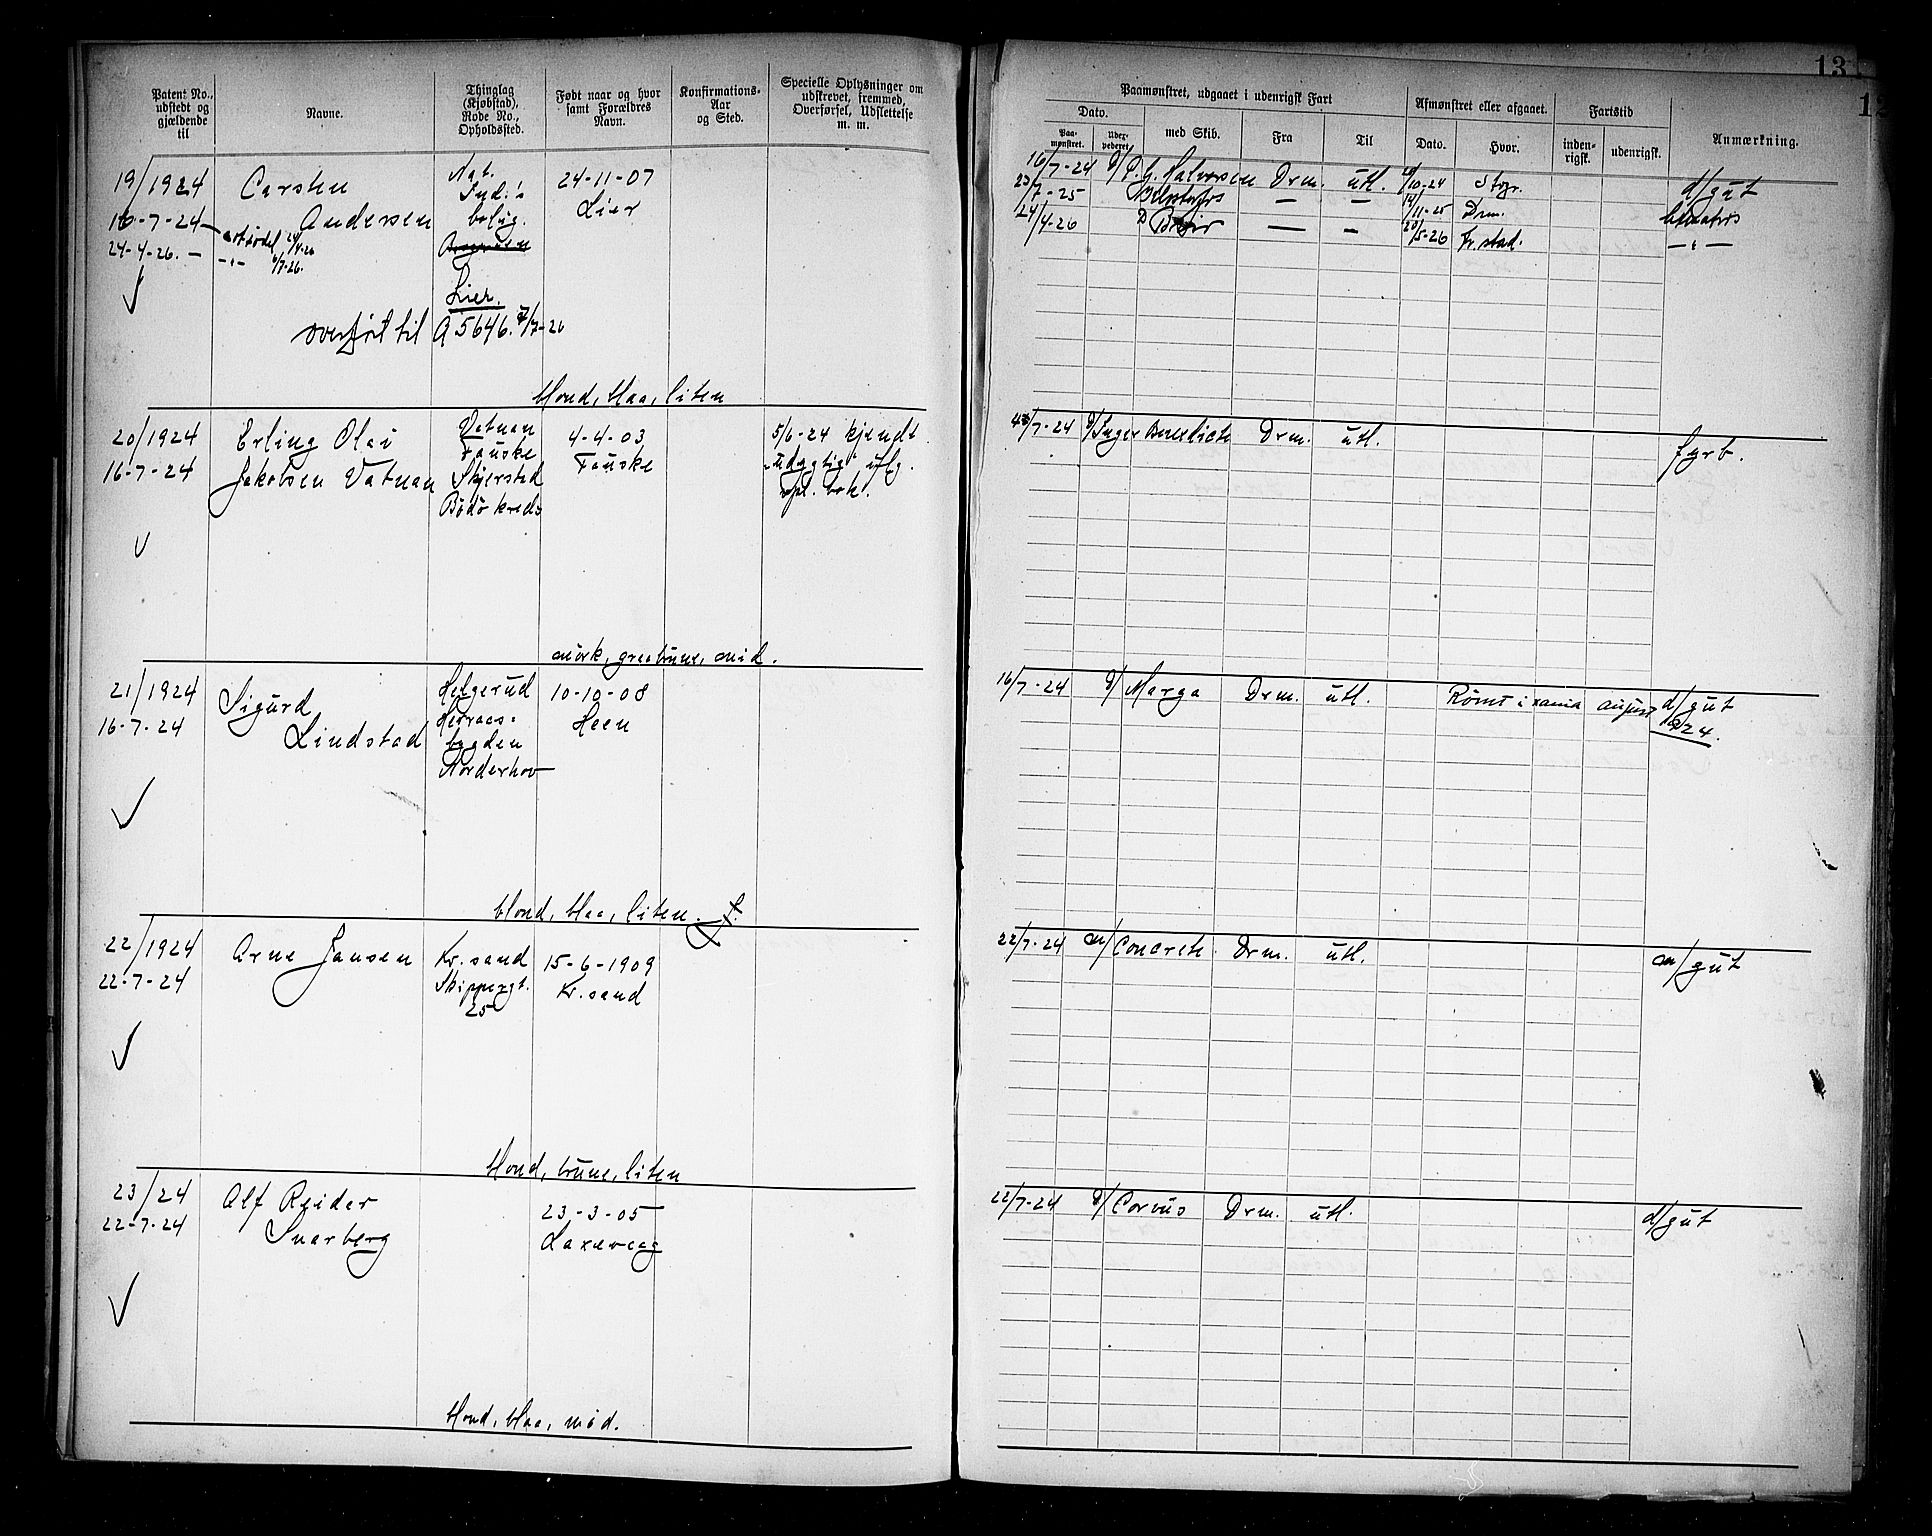 13
Patent No., udstedt og gjældende til
Navne.
Thinglag (Kjøbstad), Rode No., Opholdssted.
Født naar og hvor samt Forældres Navn.
Konfirmations-Aar og Sted.
Specielle Oplysninger om udskrevet, fremmed, Overførsel, Udslettelse m. m.
Paamønstret, udgaaet i udenrigsk Fart
Dato.
Paa-mønstret.
med Skib.
Fra
Til
Afmønstret eller afgaaet.
Dato.
Hvor.
Fartstid
inden-rigsk.
udenrigsk.
Anmærkning.
19/1924
16-7-24
24-4-26. —
Carsten
Andersen
Nat.
Lier.
24-11-07
Lier
overført til A 5646. 7/7-26
blond, blaa, liten
16/7-24 D/ P. G. Halvorsen Drm. utl. /10-24 d/gut
23/7-25 — — 14/11-25 Drm.
24/4-26 D — — 20/5-26 Fr.stad. — " —
20/1924
16-7-24
Erling Olai
Jakobsen Vatnan
Vatnan
Fauske
Skjerstad
Bodö kreds
4-4-03
Fauske
5/6-24 kjendt
"udygtig" iflg.
bok.
/7-24 D/ Inger Benedicte Drm. utl.
fyrb.
mörk, graabrune, mid.
21/1924
16-7-24
Sigurd
Lindstad
Helgerud
Heraas-
bygden
Norderhov
10-10-08
Heen
16/7-24 D/ Marga Drm. utl. Römt i august d/gut
924.
blond, blaa, liten.
22/1924
22-7-24
Arne Jansen
Kr.sand
Skippergt.
25
15-6-1909
Kr.sand
22/7-24 m/ Concrete Drm. utl.
m/gut
blond, brune, liten
23/24
22-7-24
Alf Reidar
Snarberg
23-3-05
Laxevaag
22/7-24 D/ Corvus Drm. utl.
d/gut
blond, blaa, mid.